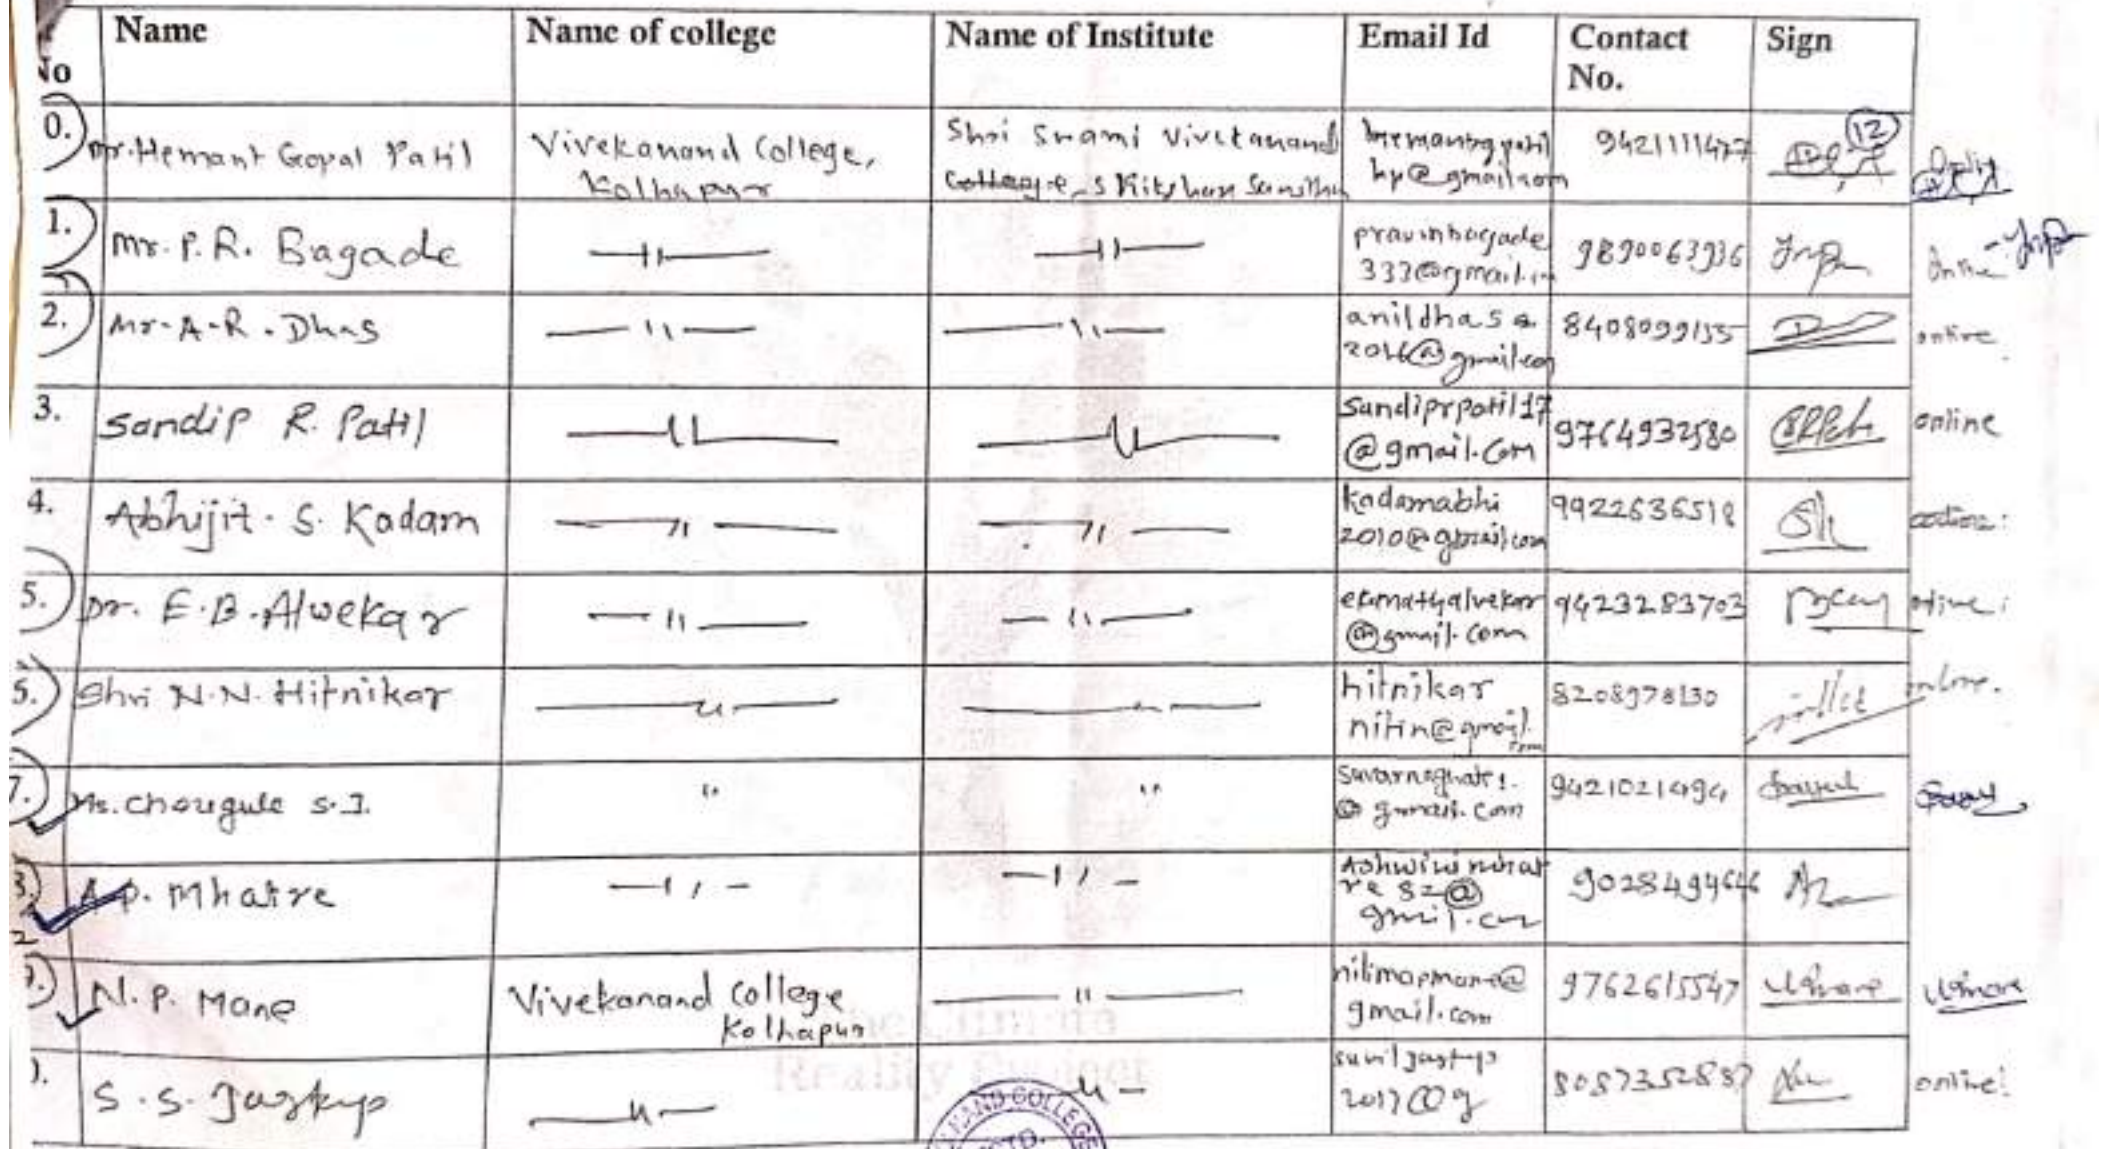 No
Name
Name of college
Name of Institute
Email Id
Contact
No.
Sign
0.
Dr. Hemant Gopal Patil
Vivekanand College,
Kolhapur
Shri Swami Vivekanand
hp@gmail.com
9421111477
12
1.
Mr. P. R. Bagade
— 11 —
— 11 —
pravinbagade
333@gmail.
9890063936
Online
2.
Mr. A. R. Dhas
— 11 —
— 11 —
anildhasa
2016@gmail.com
8408099135
online
3.
Sandip R. Patil
— 11 —
— 11 —
sandiprpatil17
@gmail.com
9764932580
online
4.
Abhijit. S. Kadam
— 11 —
— 11 —
kadamabhi
2010@gmail.com
9922636518
online.
5.
Dr. E. B. Alwekar
— 11 —
— 11 —
eknathalvekar
@gmail.com
9423283703
online.
Shri N. N. Hitnikar
— 11 —
— 11 —
hitnikar
nitin@gmail.
com
8208978130
online.
7.
Ms. Chougule S. I.
"
"
@gmail.com
9421021494
A.P. Mhatre
— 11 —
— 11 —
re82@
9028494646
N. P. Mane
Vivekanand College
Kolhapur
— 11 —
nilimapmane@
gmail.com
9762615547
Reality Project
S. S.
— 11 —
— 11 —
2017@g
8087352887
online!